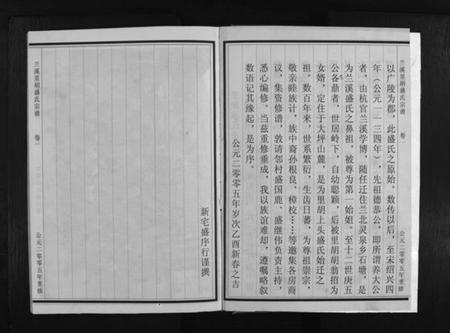 兰溪里胡盛氏宗谱
卷一
以广陵为郡，此盛氏之原始。数传以后，至宋绍兴四
年（公元一一三四年），先祖德恭公，即所谓养大公
者，由杭官兰溪学博，随任迁住兰北灵泉乡石塘，是
为兰溪盛氏之鼻祖，被尊为第一始姐，至十二世庚五
公各鼎者，世居岭下，自幼聪颖，后被里胡胡翁招为
女婿，定住于大坪山麓，是为里胡上头盛氏始迁之
祖。数百年来，世系繁衍，生齿日蕃，为尊祖崇宗，
敬亲睦族计，族中裔孙根良、樟校……等邀集各房商
议，集资修谱，敦请邻村盛国鹿、盛继伟负责主持，
悉心编修。当兹重修垂成，我以族谊难却，遵嘱略叙
数语记其缘起，是为序。
公元二零零五年岁次乙酉新春之吉
公元二零零五年重修
兰溪里胡盛氏宗谱
卷一
新宅盛序行谨撰
公元二零零五年重修